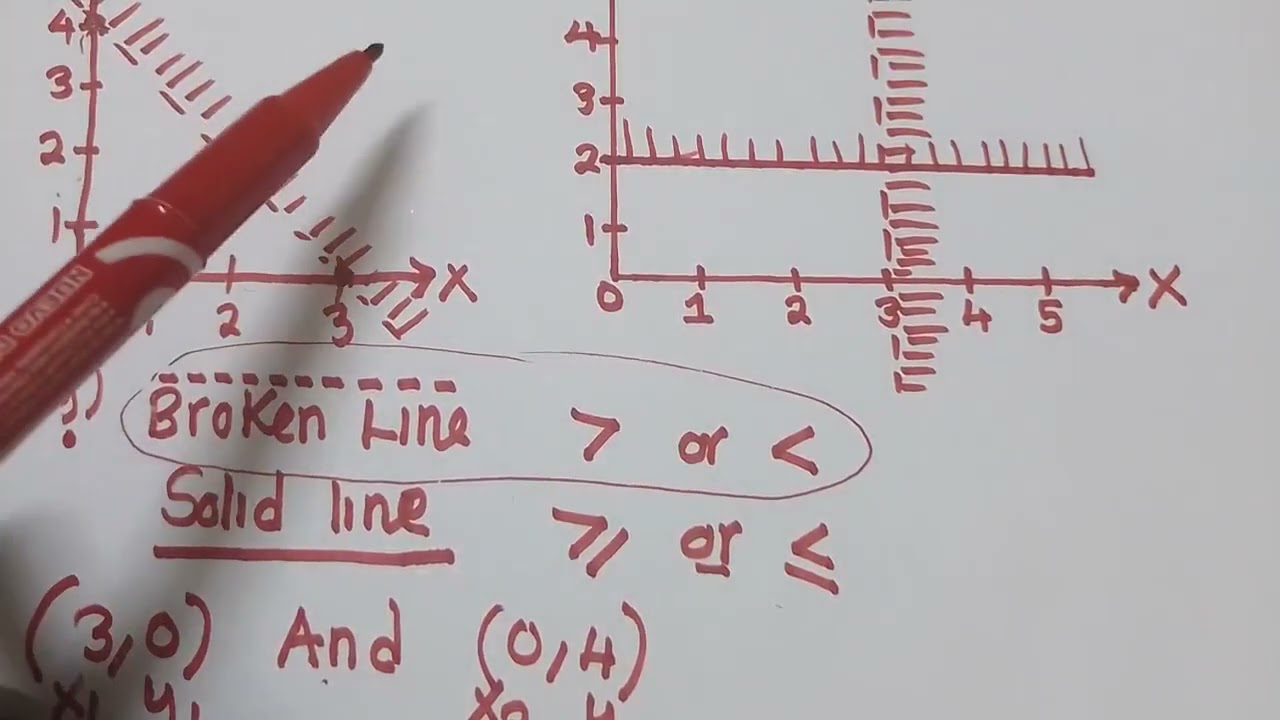 4
3
2
1
2 3 X
4
3
2
1
0 1 2 3 4 5 X
Broken Line > or <
Solid line ≥ or ≤
(3,0) And (0,4)
x₁ y₁
NUEVO